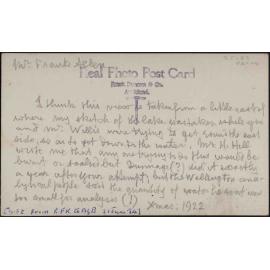 Mr Frank Allen
Real Photo Post Card
Frank Duncan & Co.
Auckland.
I think this view is taken from a little east of
where my sketch of the lake was taken while you
and Mr. Willis were trying to get round the east
side, so as to get down to the water. Mr. H. Hill
wrote me that any one trying to do this would be
burnt or scalded but did it exactly
a year after your attempt, but the Wellington ana-
lytical people said the quantity of water he sent was
too small for analysis (!)
Xmas. 1922